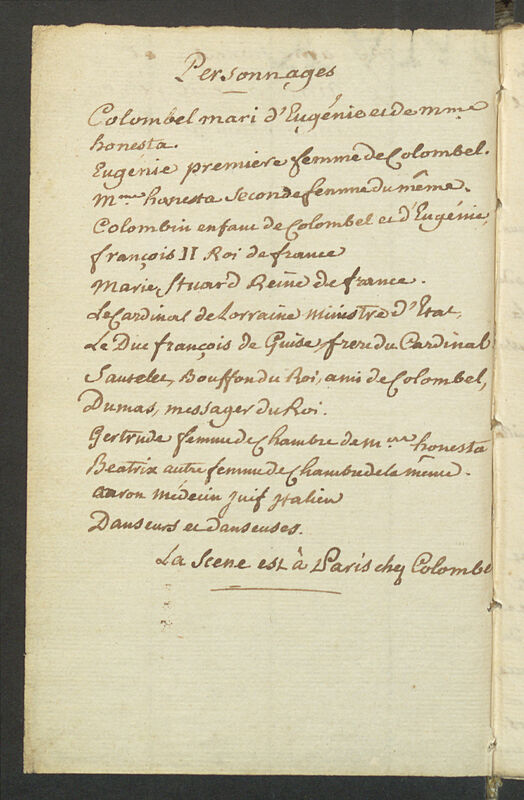 Personnages
Colombel mari d'Eugénie et de mme
honesta.
Eugénie premiere femme de Colombel.
Mme honesta seconde femme du même.
Colombin enfant de Colombel et d'Eugénie,
françois II Roi de france
Marie Stuard Reine de france.
Le Cardinal de Lorraine ministre d'Etat,
Le Duc françois de Guise, frere du Cardinal
Sautelet, Bouffon du Roi, ami de Colombel,
Dumas, messager du Roi.
Gertrude femme de Chambre de mme honesta
Beatrix autre femme de Chambre de la même.
aaron médecin juif jtalien
Danseurs et danseuses.
La Scene est à Paris chez Colombel